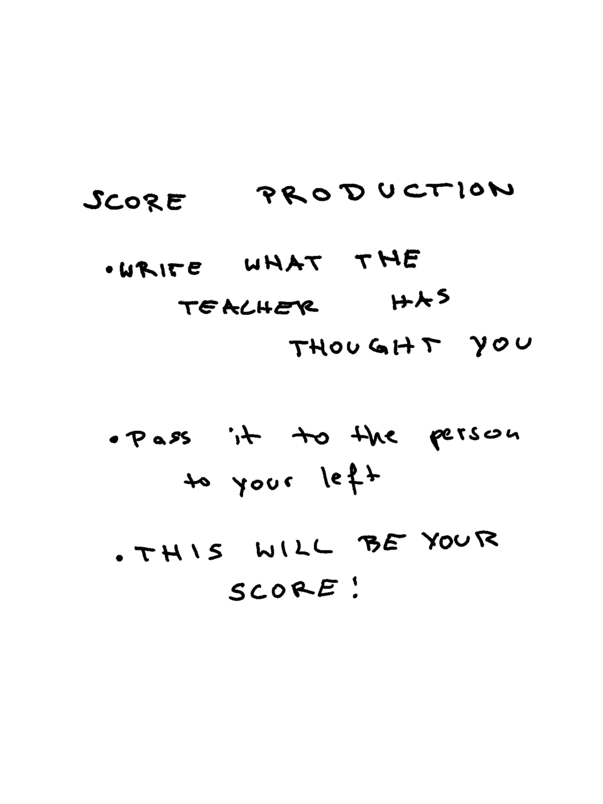 SCORE PRODUCTION
• WRITE WHAT THE
TEACHER HAS
THOUGHT YOU
• Pass it to the person
to your left
• THIS WILL BE YOUR
SCORE!